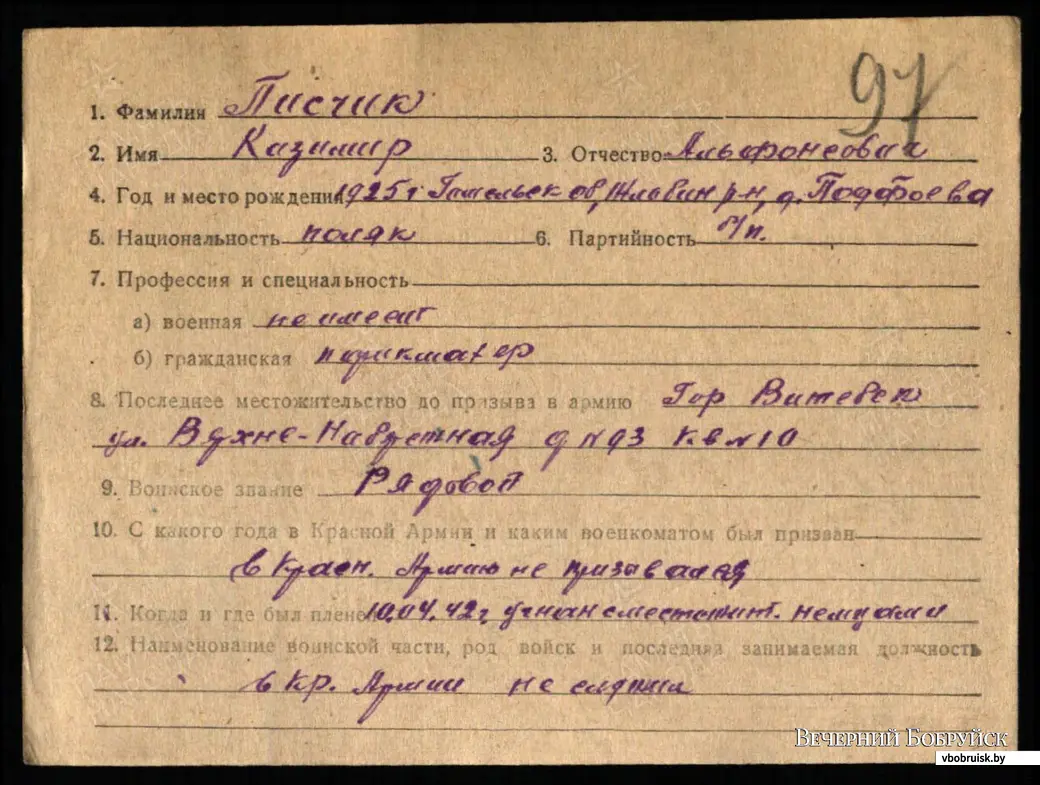 97
1. Фамилия Писчик
2. Имя Казимир 3. Отчество Альфонсович
4. Год и место рождения 1925 г Гомельск об, Жлобин р-н, д.
5. Национальность поляк 6. Партийность б/п.
7. Профессия и специальность
а) военная не имеет
б) гражданская парикмахер
8. Последнее местожительство до призыва в армию Гор Витебск
ул. д № 93 кв № 10
9. Воинское звание Рядовой
10. С какого года в Красной Армии и каким военкоматом был призван
в Красн. Армию не призывался
11. Когда и где был пленен 10.04.42 г, угнан с местожит. немцами
12. Наименование воинской части, род войск и последняя занимаемая должность
в Кр. Армии не служил
Вечерний Бобруйск
vbobruisk.by